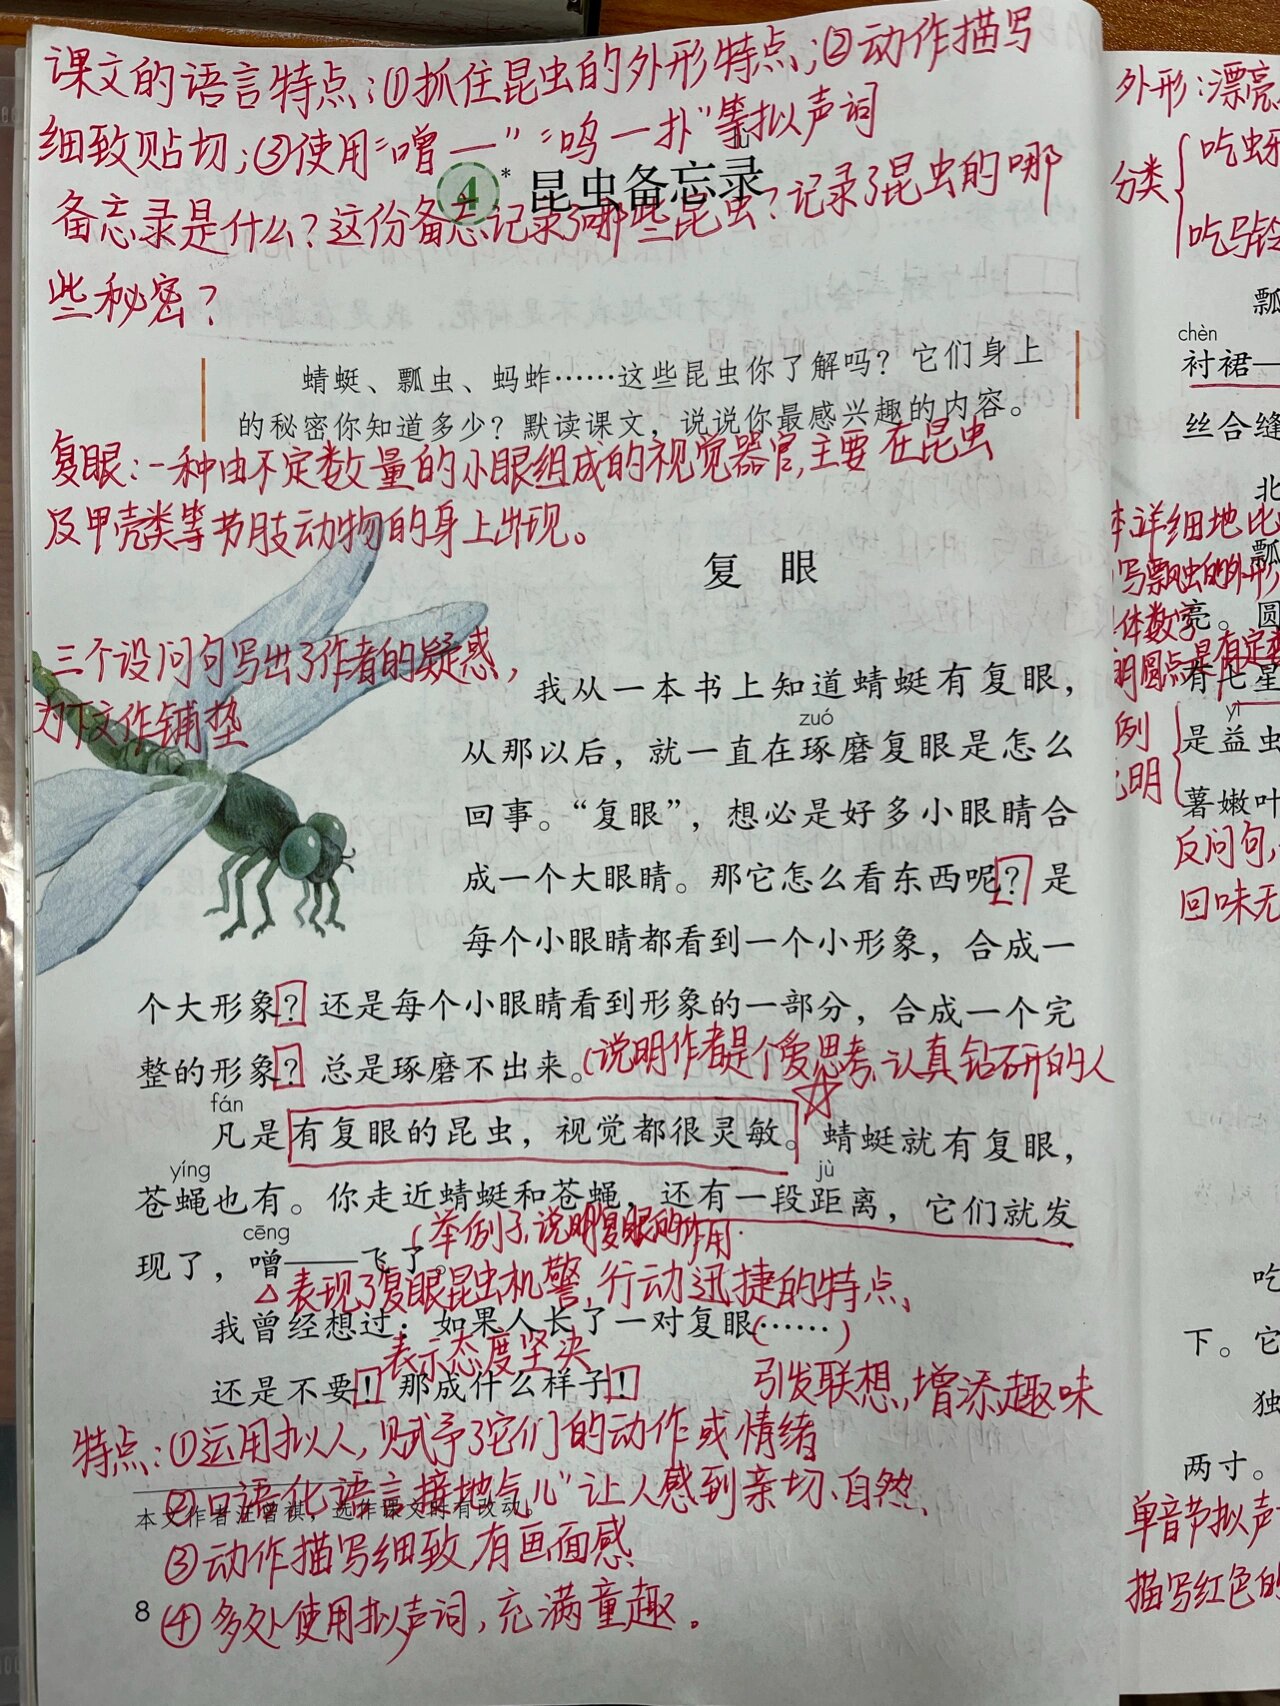 课文的语言特点：①抓住昆虫的外形特点；②动作描写
细致贴切；③使用“噌—”“呜—扑”等拟声词
4* 昆虫备忘录
备忘录是什么？这份备忘记录了哪些昆虫？记录了昆虫的哪
些秘密？
蜻蜓、瓢虫、蚂蚱……这些昆虫你了解吗？它们身上
的秘密你知道多少？默读课文，说说你最感兴趣的内容。
复眼：一种由不定数量的小眼组成的视觉器官，主要在昆虫
及甲壳类等节肢动物的身上出现。
复眼
三个设问句写出了作者的疑惑，
为下文作铺垫
我从一本书上知道蜻蜓有复眼，
zuó
从那以后，就一直在琢磨复眼是怎么
回事。“复眼”，想必是好多小眼睛合
成一个大眼睛。那它怎么看东西呢？是
每个小眼睛都看到一个小形象，合成一
个大形象？还是每个小眼睛看到形象的一部分，合成一个完
整的形象？总是琢磨不出来。
(说明作者是个爱思考、认真钻研的人
fán
凡是有复眼的昆虫，视觉都很灵敏。蜻蜓就有复眼，
yíng jù
苍蝇也有。你走近蜻蜓和苍蝇，还有一段距离，它们就发
(举例子，说明复眼的作用.
cēng
现了，噌——飞了。
△表现了复眼昆虫机警，行动迅捷的特点、
我曾经想过：如果人长了一对复眼……
表示态度坚决
还是不要！那成什么样子！
引发联想，增添趣味
特点：①运用拟人，赋予了它们的动作或情绪
②口语化语言“接地气儿”让人感到亲切、自然、
本文作者汪曾祺，选作课文时有改动。
③动作描写细致，有画面感
8
④多处使用拟声词，充满童趣。
外形：漂亮
分类
吃蚜
吃马铃
瓢
chèn
衬裙—
丝合缝
北
详细地比
瓢
写瓢虫的外形
亮。圆
体数字
圆点是有定
有七星
yì
例
是益虫
明
薯嫩叶
反问句，
回味无
吃
下。它
独
两寸。
单音节拟声
描写红色的